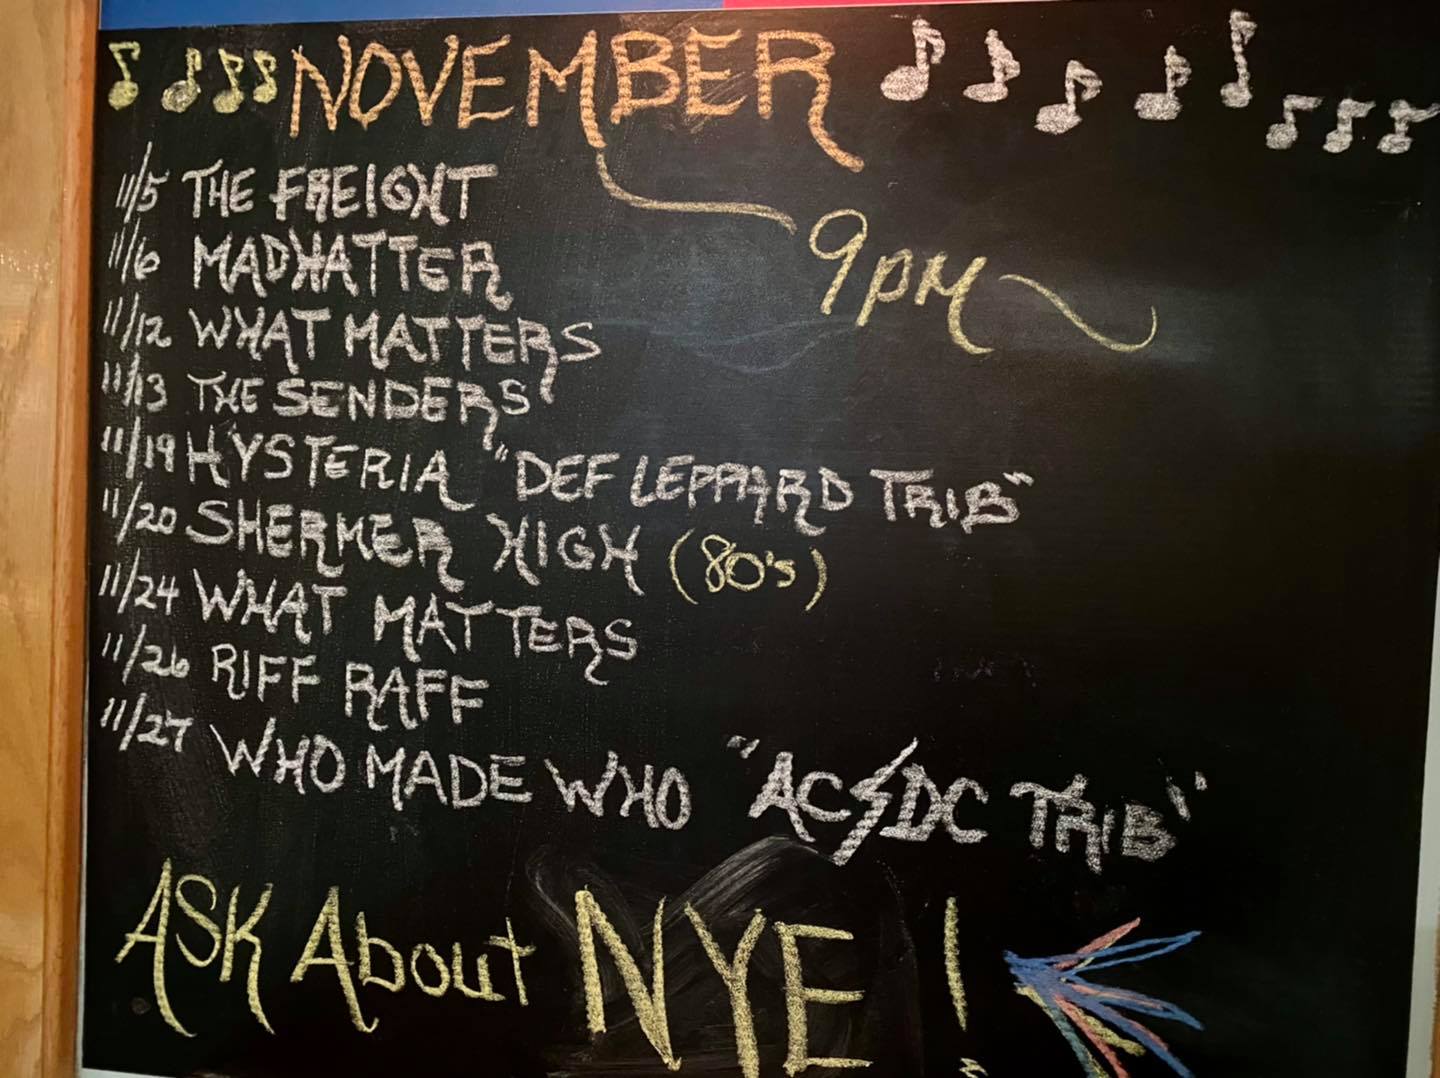 NOVEMBER
9PM
11/5 THE FREIGHT
11/6 MADHATTER
11/12 WHAT MATTERS
11/13 THE SENDERS
11/19 HYSTERIA "DEF LEPPARD TRIB"
11/20 SHERMER HIGH (80's)
11/24 WHAT MATTERS
11/26 RIFF RAFF
11/27 WHO MADE WHO "AC⚡DC TRIB"
ASK About NYE!